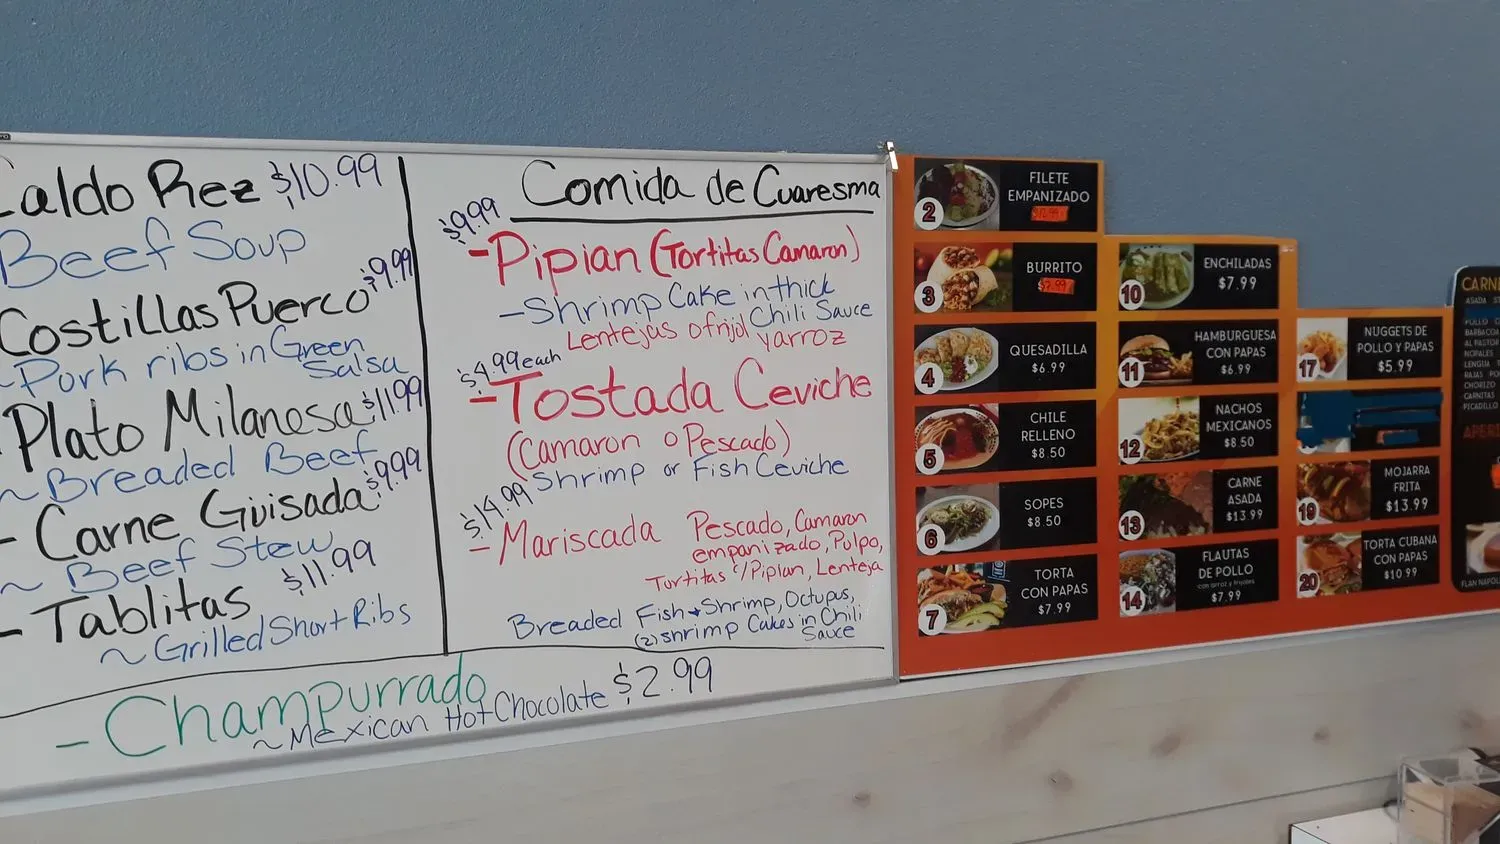 Caldo Rez $10.99
Beef Soup
Costillas Puerco $9.99
~Pork ribs in Green
Salsa
Plato Milanesa $11.99
~Breaded Beef
- Carne Guisada $9.99
~ Beef Stew
- Tablitas $11.99
~Grilled Short Ribs
Comida de Cuaresma
$9.99
-Pipian (Tortitas Camaron)
-Shrimp Cake in thick
Chili Sauce
Lentejas o frijol y arroz
$4.99 each
-Tostada Ceviche
(Camaron o Pescado)
Shrimp or Fish Ceviche
$14.99
- Mariscada Pescado, Camaron
empanizado, Pulpo,
Tortitas c/Pipian, Lenteja
Breaded Fish + Shrimp, Octupus,
(2) shrimp Cakes in Chili
Sauce
- Champurrado
~Mexican Hot Chocolate $2.99
2
FILETE
EMPANIZADO
3
BURRITO
4
QUESADILLA
$6.99
5
CHILE
RELLENO
$8.50
6
SOPES
$8.50
7
TORTA
CON PAPAS
$7.99
10
ENCHILADAS
$7.99
11
HAMBURGUESA
CON PAPAS
$6.99
12
NACHOS
MEXICANOS
$8.50
13
CARNE
ASADA
$13.99
14
FLAUTAS
DE POLLO
con arroz y frijoles
$7.99
17
NUGGETS DE
POLLO Y PAPAS
$5.99
19
MOJARRA
FRITA
$13.99
20
TORTA CUBANA
CON PAPAS
$10.99
CARN
ASADA
POLLO
BARBACOA
AL PASTOR
NOPALES
LENGUA
RAJAS
CHORIZO
CARNITAS
PICADILLO
APER
FLAN NAPOL